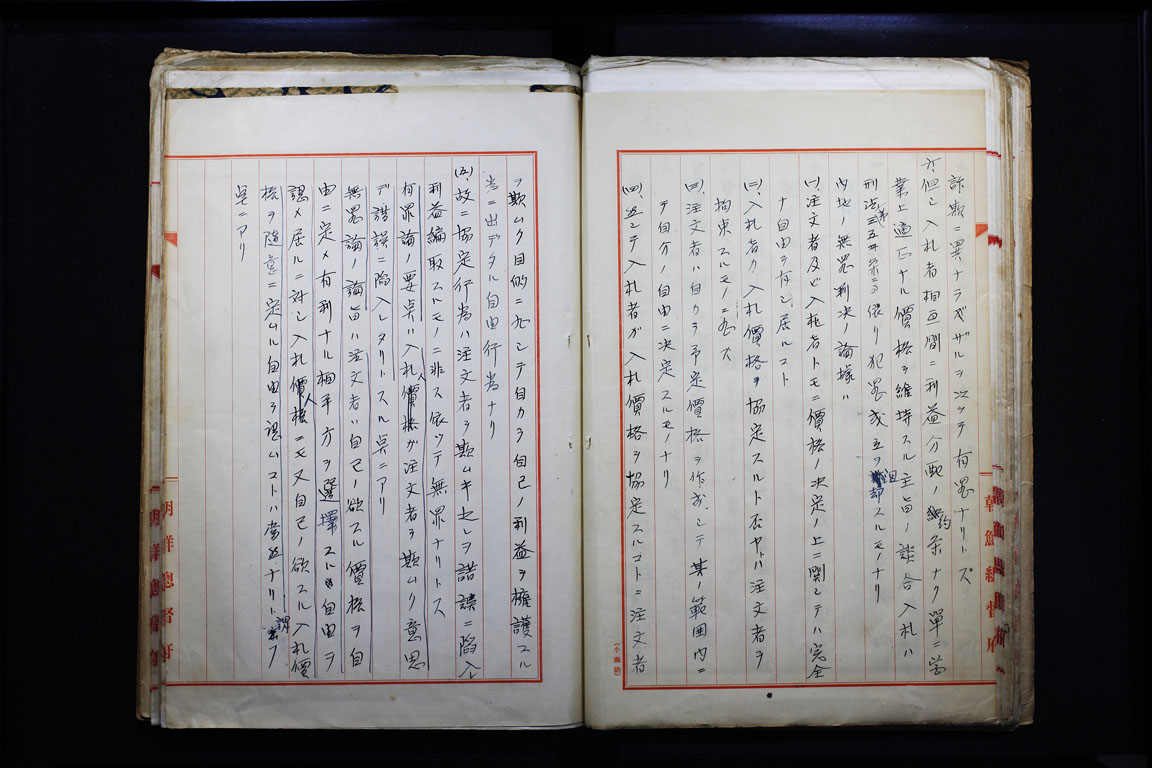 詐欺ニ異ナラザルヲ以テ有罪ナリトス
六、但シ入札者相互間ニ利益分配ノ約条ナク單ニ営
業上適正ナル價格ヲ維持スル主旨ノ談合入札ハ
刑法第三五条ニ依リ犯罪成立ヲ阻却スルモノナリ
内地ノ無罪判決ノ論據ハ
(一)、注文者及ビ入札者トモニ價格ノ決定ノ上ニ関シテハ完全
ナ自由ヲ有シ居ルコト
(二)、入札者ガ入札價格ヲ協定スルト否ヤトハ注文者ヲ
拘束スルモノニ非ズ
(三)、注文者ハ自カラ予定價格ヲ作成シテ其ノ範囲内ニ
テ自分ノ自由ニ決定スルモノナリ
(四)、並シテ入札者ガ入札價格ヲ協定スルコトニ注文者
ヲ欺ムク目的ニ非シテ自カラ自己ノ利益ヲ擁護スル
為ニ出デタル自由行為ナリ
(五)、故ニ協定行為ハ注文者ヲ欺ムキ之レヲ錯誤ニ陥入レ
利益騙取スルモノニ非ス依ツテ無罪ナリトス
有罪論ノ要点ハ入札價格ガ注文者ヲ欺ムク意思
デ錯誤ニ陥入レタリトスル点ニアリ
無罪論ノ論旨ハ注文者ハ自己ノ欲スル價格ヲ自
由ニ定メ有利ナル相手方ヲ選擇スル自由ヲ
認メ居ルニ対シ入札人ニモ又自己ノ欲スル入札價
格ヲ随意ニ定ムル自由ヲ認ムコトハ当然ナリト謂フ
点ニアリ
朝鮮總督府
朝鮮總督府